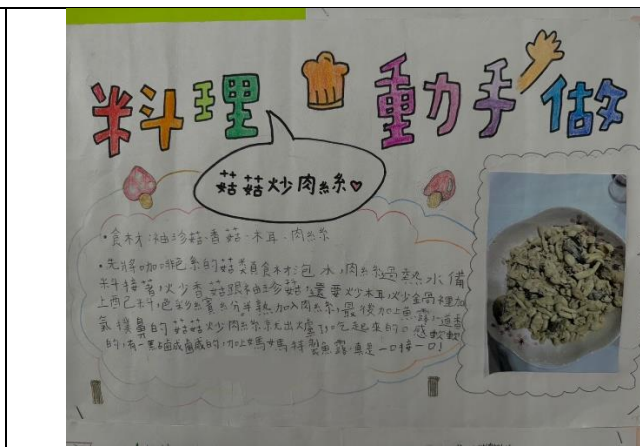 料理 動手做
菇菇炒肉絲
・食材:袖珍菇・香菇・木耳・肉絲
・先將咖啡色系的菇類食材泡水,肉絲過熱水備
料接著,炒香菇跟袖珍菇,還要炒木耳,炒鍋裡加
上配料色 分半熟加入肉絲,最後加上魚露,道香
氣撲鼻的菇菇炒肉絲就大出爐 吃起來的口感軟軟
的,有一點鹹鹹的,加上媽媽特 魚露,真是一口接一口!